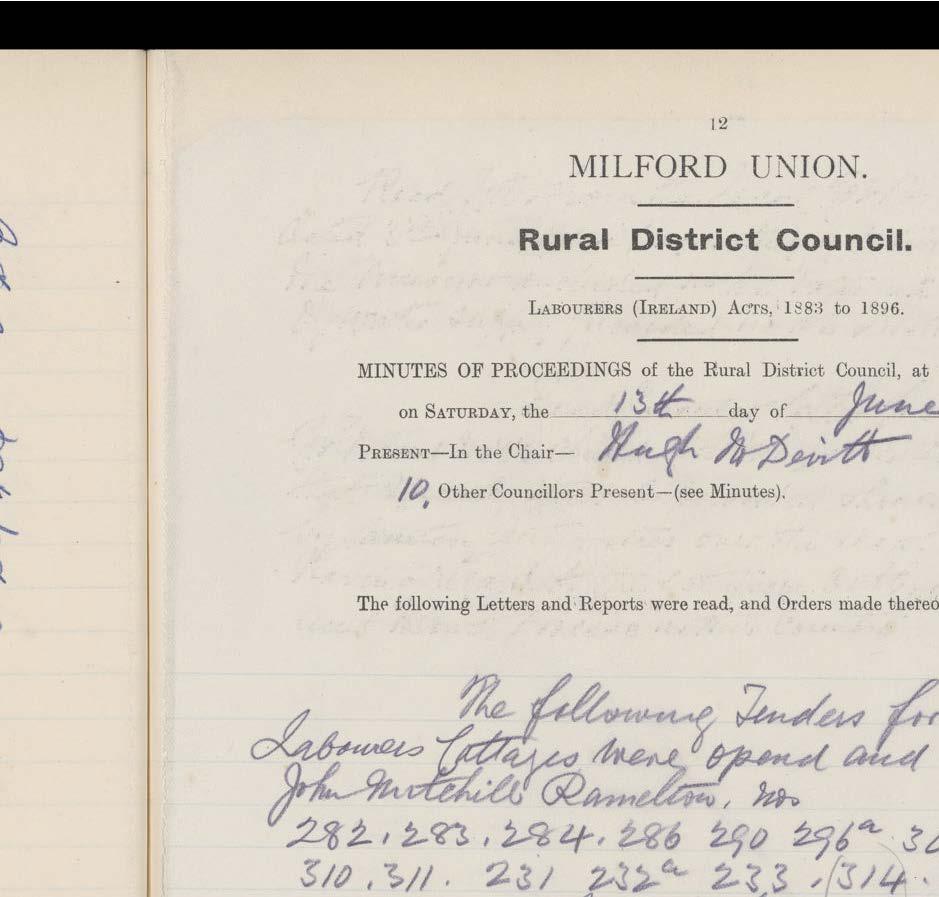 12
MILFORD UNION.
Rural District Council.
LABOURERS (IRELAND) ACTS, 1883 to 1896.
MINUTES OF PROCEEDINGS of the Rural District Council, at
on SATURDAY, the 13th day of June
PRESENT—In the Chair— Hugh McDevitt
10, Other Councillors Present—(see Minutes).
The following Letters and Reports were read, and Orders made thereo
The following Tenders for
Labourers Cottages were opend and
John Mitchill Ramelton, Nos
282, 283, 284, 286 290 296a 30
310, 311. 231 232a 233, (314.